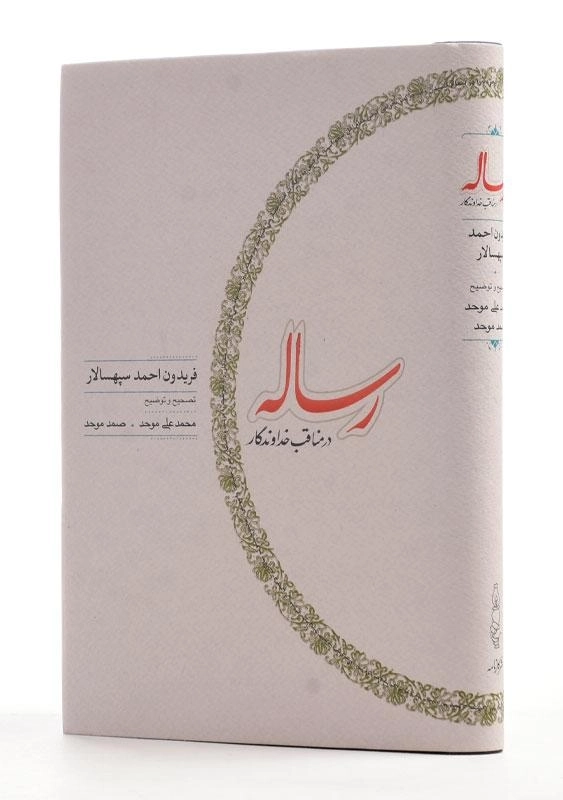 رساله
در مناقب خداوندگار
فریدون احمد سپهسالار
تصحیح و توضیح
محمدعلی موحد . صمد موحد
رساله
در مناقب خداوندگار
احمد
موحد
موحد